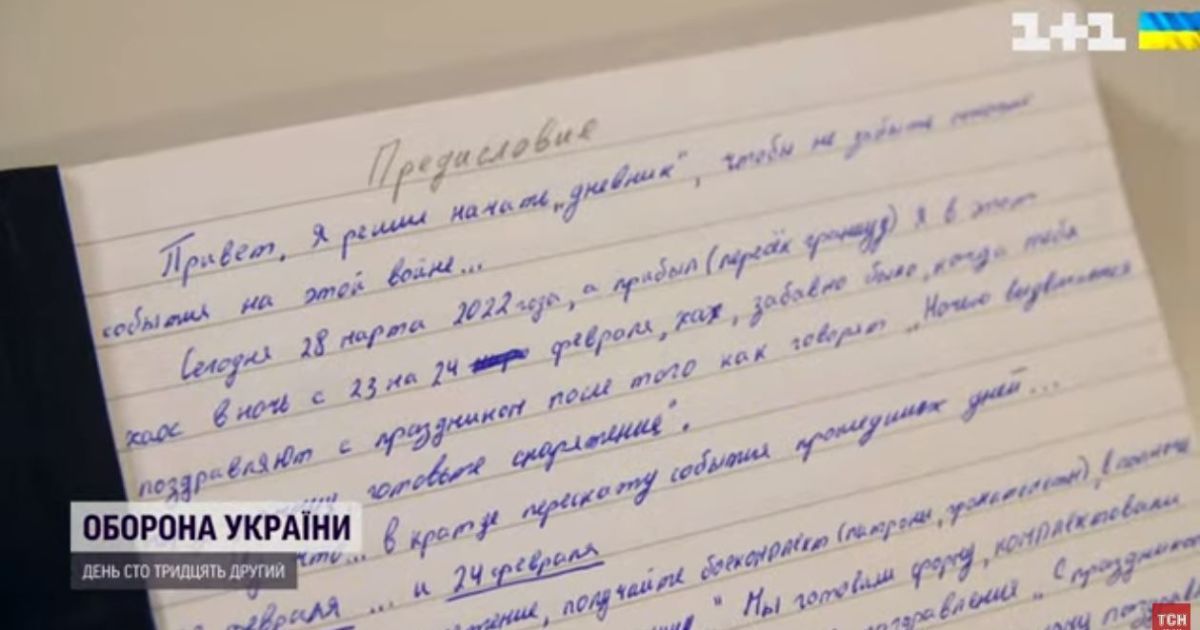 1+1
Предисловие
Привет, я решил начать „дневник“, чтобы не забыть
события на этой войне...
Сегодня 28 марта 2022 года, а прибыл (пересёк границу) я в этот
хаос в ночь с 23 на 24 февраля, хах, забавно было, когда тебя
поздравляют с праздником после того как говорят „Ночью выдвигаемся
готовьте снаряжение“.
в кратце перескажу события прошедших дней...
февраля ... и 24 февраля
получайте боекомплект (патроны, гранаты), в полночь
" Мы готовили форму, комплектовали
„С праздником
ОБОРОНА УКРАЇНИ
ДЕНЬ СТО ТРИДЦЯТЬ ДРУГИЙ
ТСН